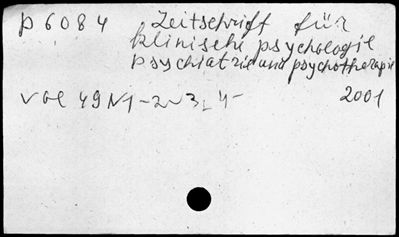 p 6084 Zeitschrift für
klinische psychologie
psychiatrie und psychotherapie
vol 49 N1-2N3,4- 2001